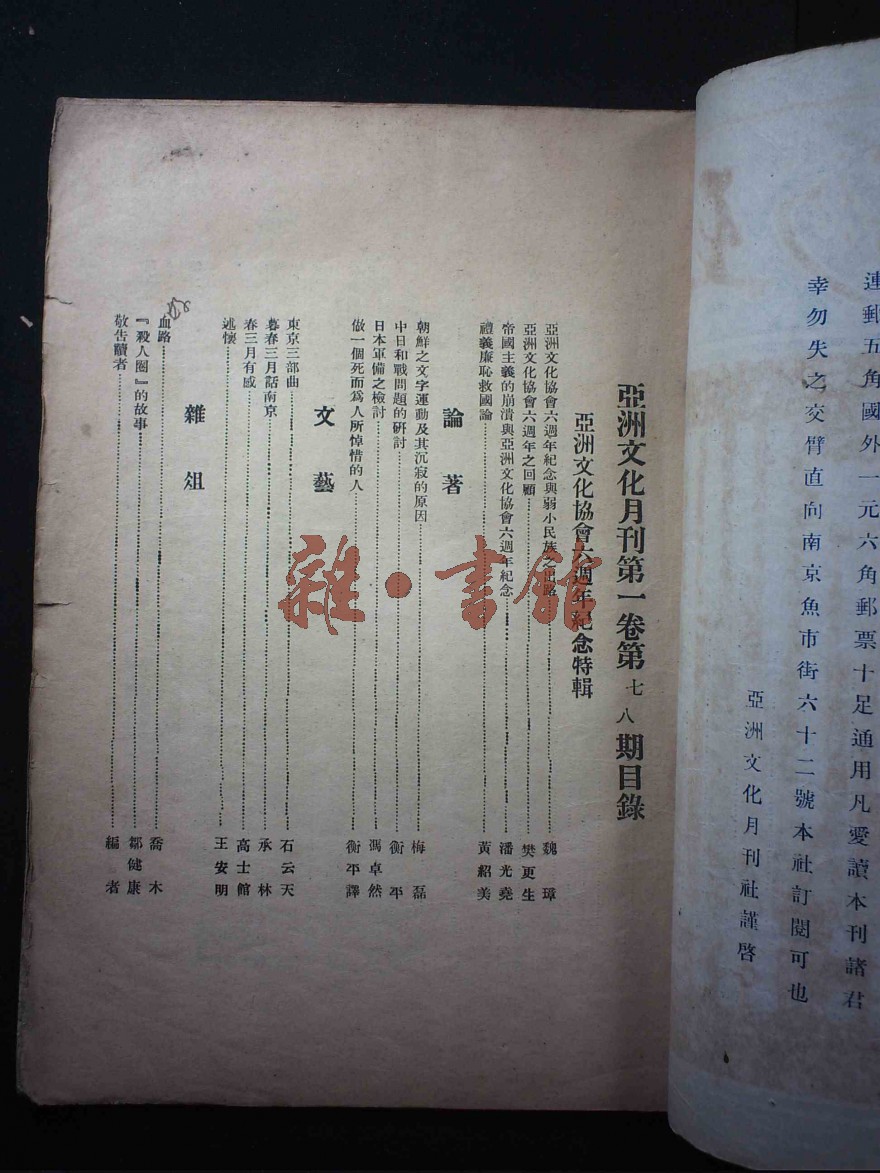 連郵五角國外一元六角郵票十足通用凡愛讀本刊諸君
幸勿失之交臂直向南京魚市街六十二號本社訂閱可也
亞洲文化月刊社謹啓
亞洲文化月刊第一卷第七八期目錄
亞洲文化協會六週年紀念特輯
亞洲文化協會六週年紀念與弱小民族之出路 魏璋
亞洲文化協會六週年之回顧 樊更生
帝國主義的崩潰與亞洲文化協會六週年紀念 潘光堯
禮義廉恥救國論 黃紹美
論著
朝鮮之文字運動及其沉寂的原因 梅磊
中日和戰問題的研討 衡平
日本軍備之檢討 馮卓然
做一個死而爲人所悼惜的人 衡平譯
文藝
東京三部曲 石云天
暮春三月話南京 承林
春三月有感 高士館
述懷 王安明
雜俎
血路 喬木
『殺人圈』的故事 鄒健康
敬告讀者 編者
雜·書館